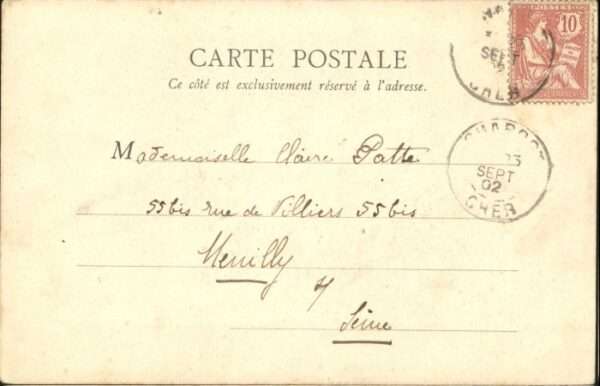 CARTE POSTALE
Ce côté est exclusivement réservé à l'adresse.
POSTES
10
SEPT
CHER
Mademoiselle Claire Patte
55bis rue de Villiers 55bis
Neuilly
s/
Seine
CHAROST
SEPT
02
CHER